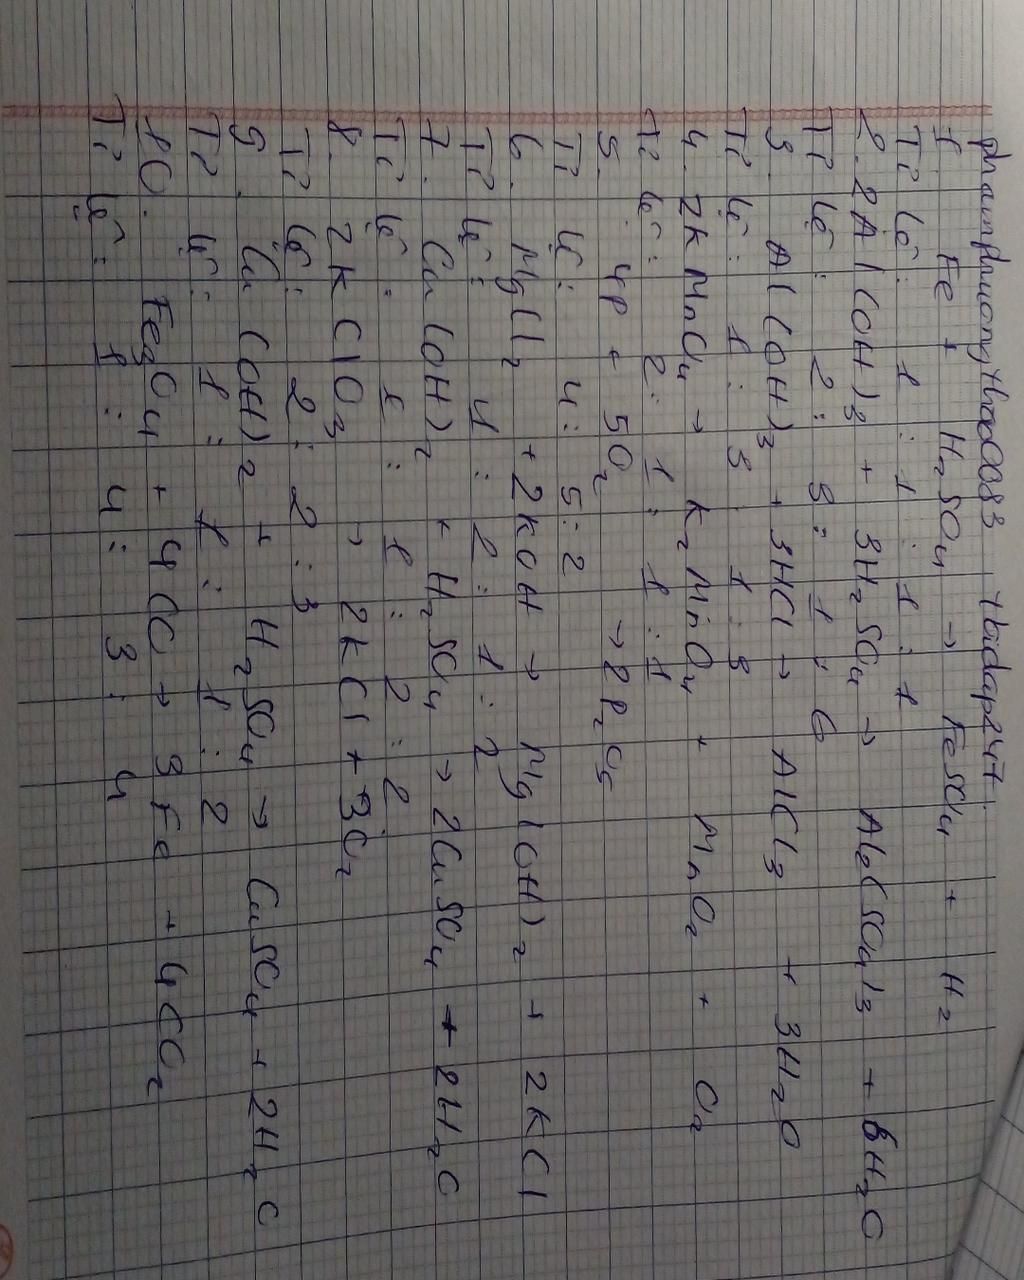 phamphuongthao0083 + bidap247.
1. Fe + H₂SO₄ → FeSO₄ + H₂
Tỉ lệ: 1 : 1 : 1 : 1
2. 2Al(OH)₃ + 3H₂SO₄ → Al₂(SO₄)₃ + 6H₂O
Tỉ lệ: 2 : 3 : 1 : 6
3. Al(OH)₃ + 3HCl → AlCl₃ + 3H₂O
Tỉ lệ: 1 : 3 : 1 : 3
4. 2KMnO₄ → K₂MnO₄ + MnO₂ + O₂
Tỉ lệ: 2 : 1 : 1 : 1
5. 4P + 5O₂ → 2P₂O₅
Tỉ lệ: 4 : 5 : 2
6. MgCl₂ + 2KOH → Mg(OH)₂ + 2KCl
Tỉ lệ: 1 : 2 : 1 : 2
7. Cu(OH)₂ + H₂SO₄ → 2CuSO₄ + 2H₂O
Tỉ lệ: 1 : 1 : 2 : 2
8. 2KClO₃ → 2KCl + 3O₂
Tỉ lệ: 2 : 2 : 3
9. Cu(OH)₂ + H₂SO₄ → CuSO₄ + 2H₂O
Tỉ lệ: 1 : 1 : 1 : 2
10. Fe₃O₄ + 4CO → 3Fe + 4CO₂
Tỉ lệ: 1 : 4 : 3 : 4